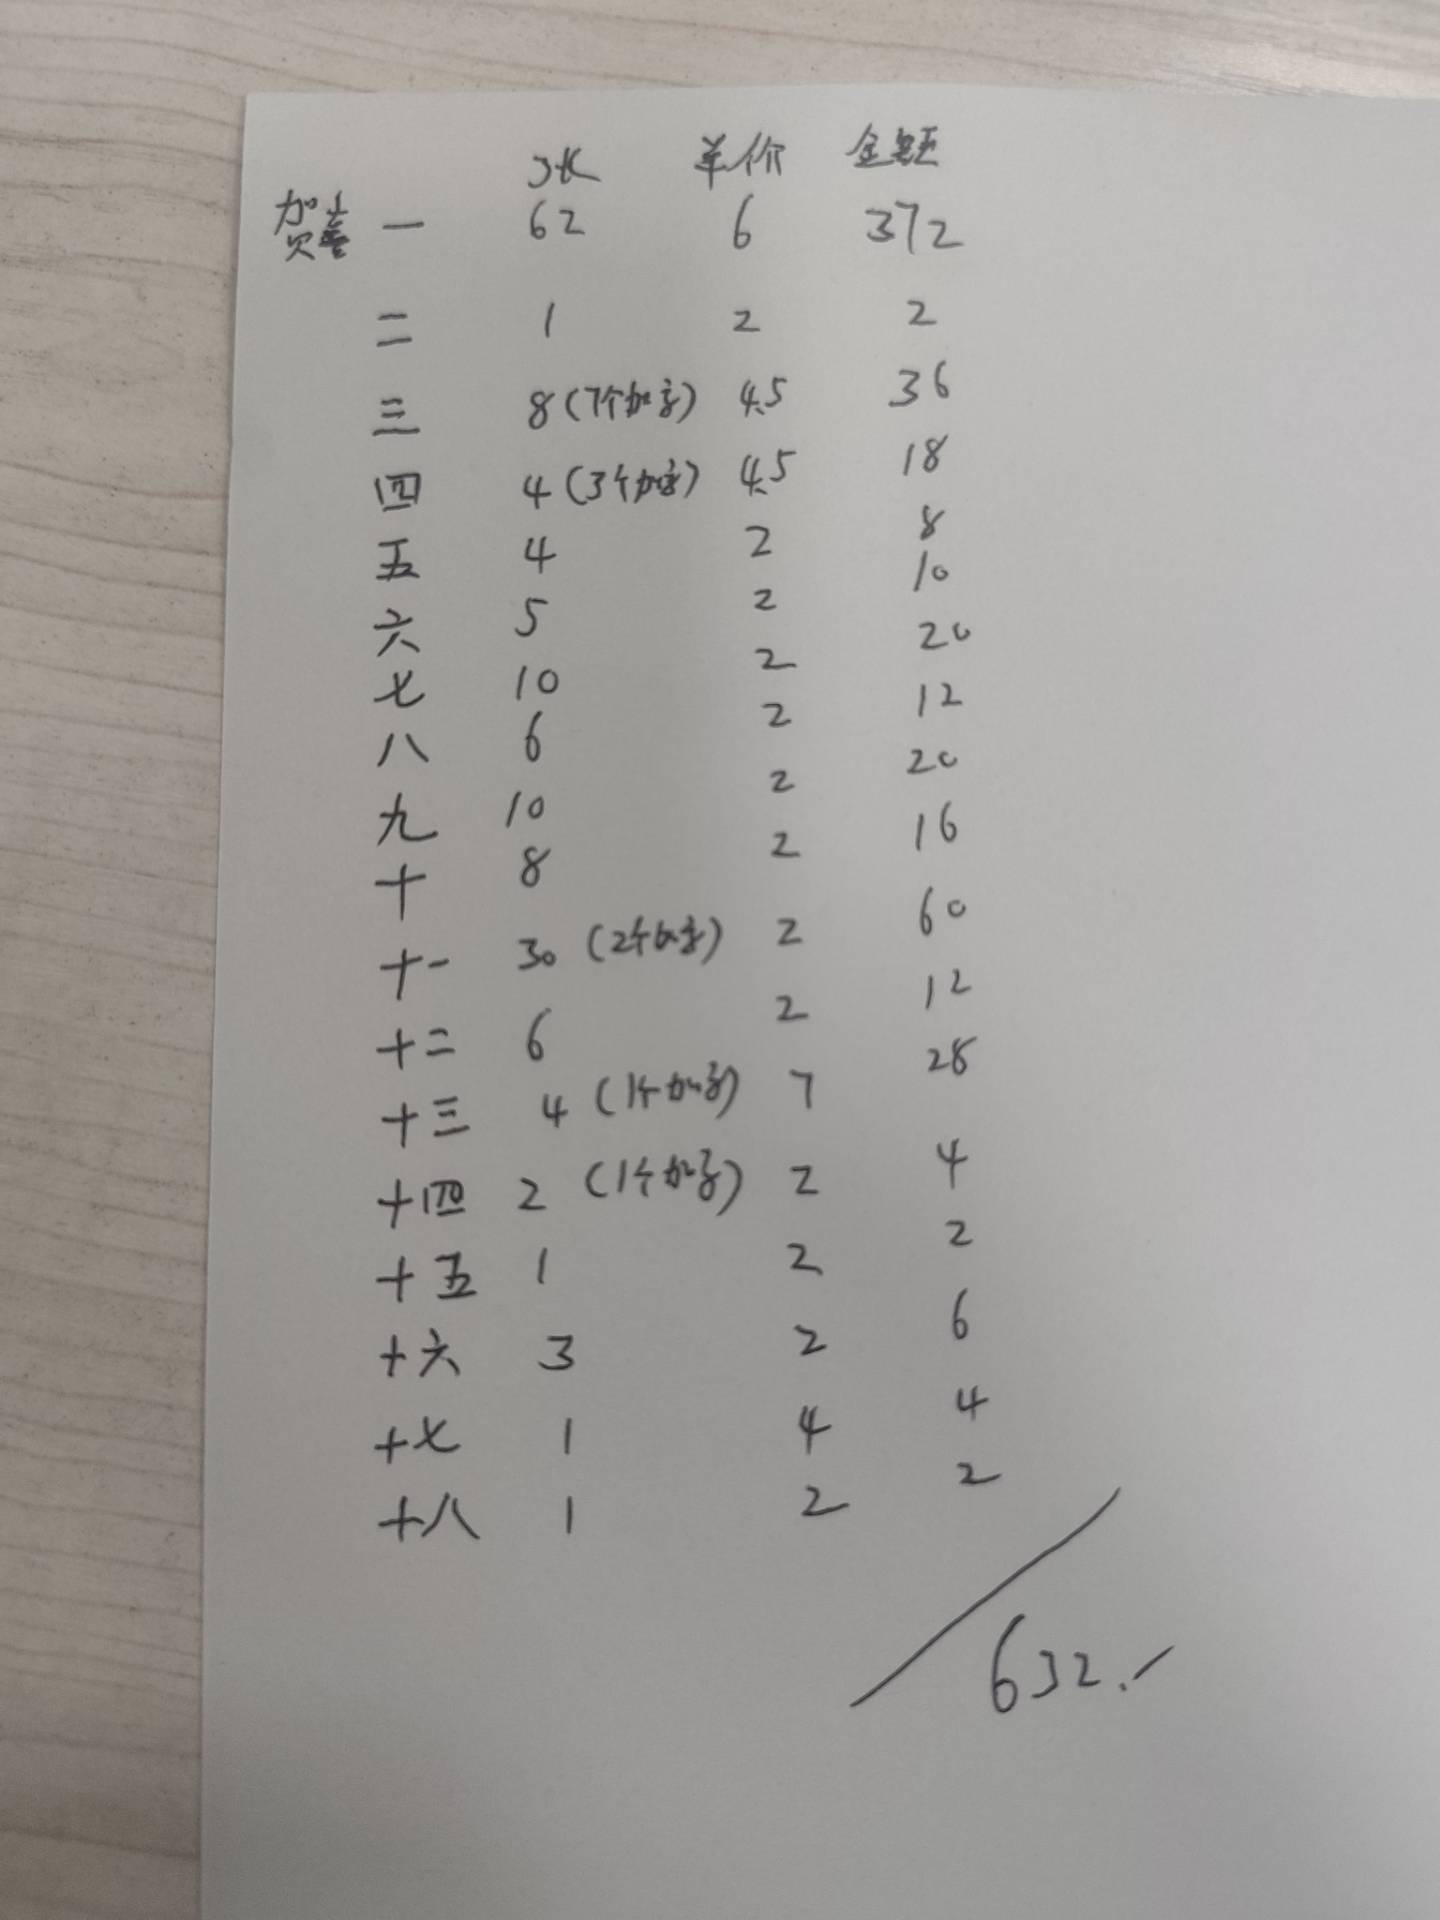 张 单价 金额
贺喜 一 62 6 372
二 1 2 2
三 8(7个加字) 4.5 36
四 4(3个加字) 4.5 18
五 4 2 8
六 5 2 10
七 10 2 20
八 6 2 12
九 10 2 20
十 8 2 16
十一 30(2个加字) 2 60
十二 6 2 12
十三 4(1个加字) 7 28
十四 2(1个加字) 2 4
十五 1 2 2
十六 3 2 6
十七 1 4 4
十八 1 2 2
632.-